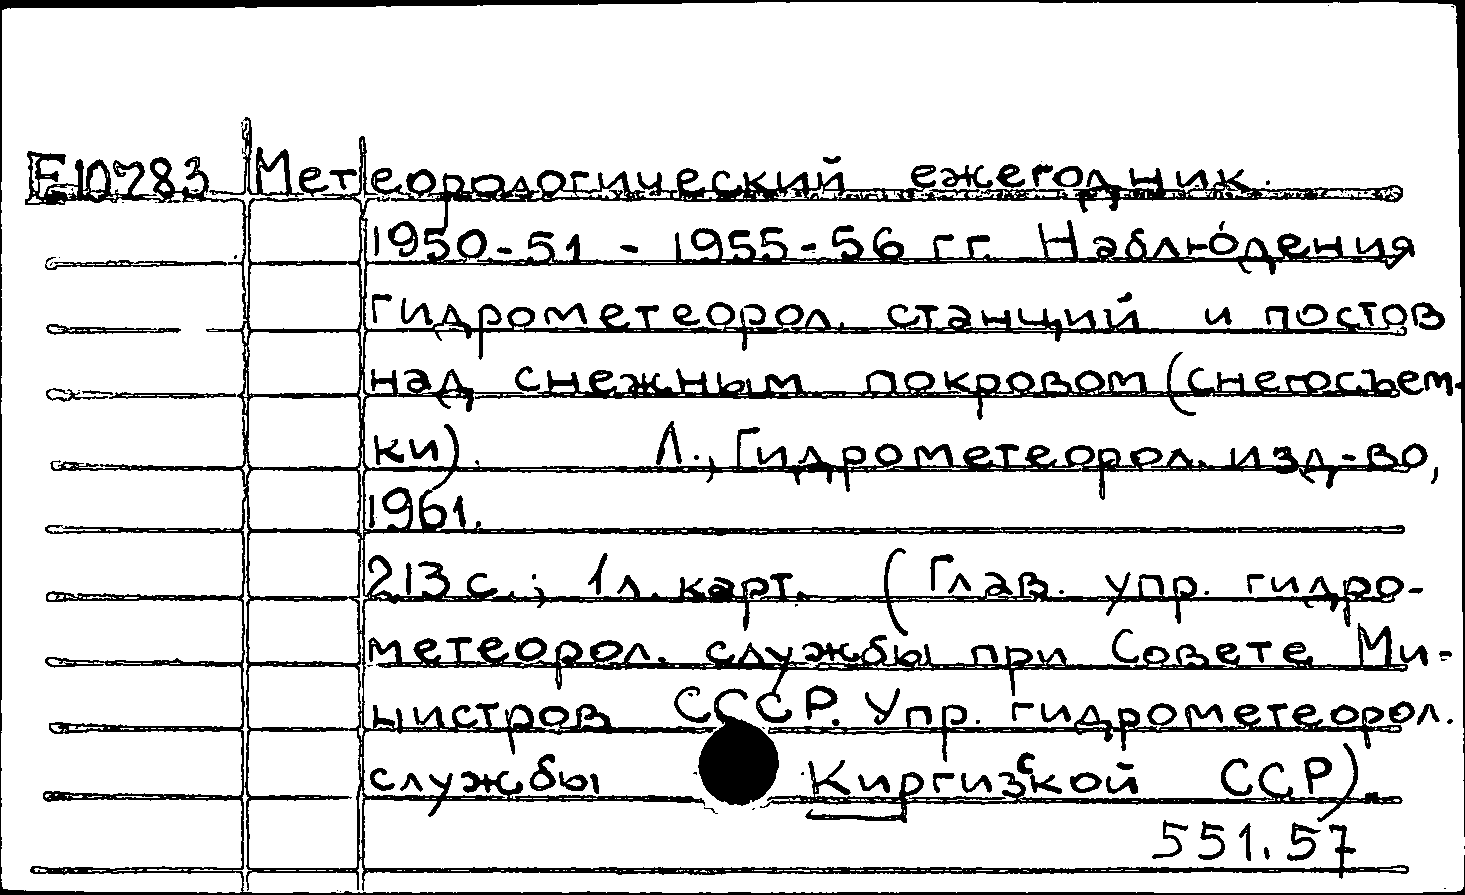 E10783 Метеорологический ежегодник.
1950-51 - 1955-56 гг. Наблюдения
гидрометеорол. станций и постов
над снежным покровом (снегосъем-
ки). Л., Гидрометеорол. изд-во,
1961.
213 с.; 1 л. карт. (Глав. упр. гидро-
метеорол. службы при Совете Ми-
нистров СССР. Упр. гидрометеорол.
службы Киргизской ССР).
551.57